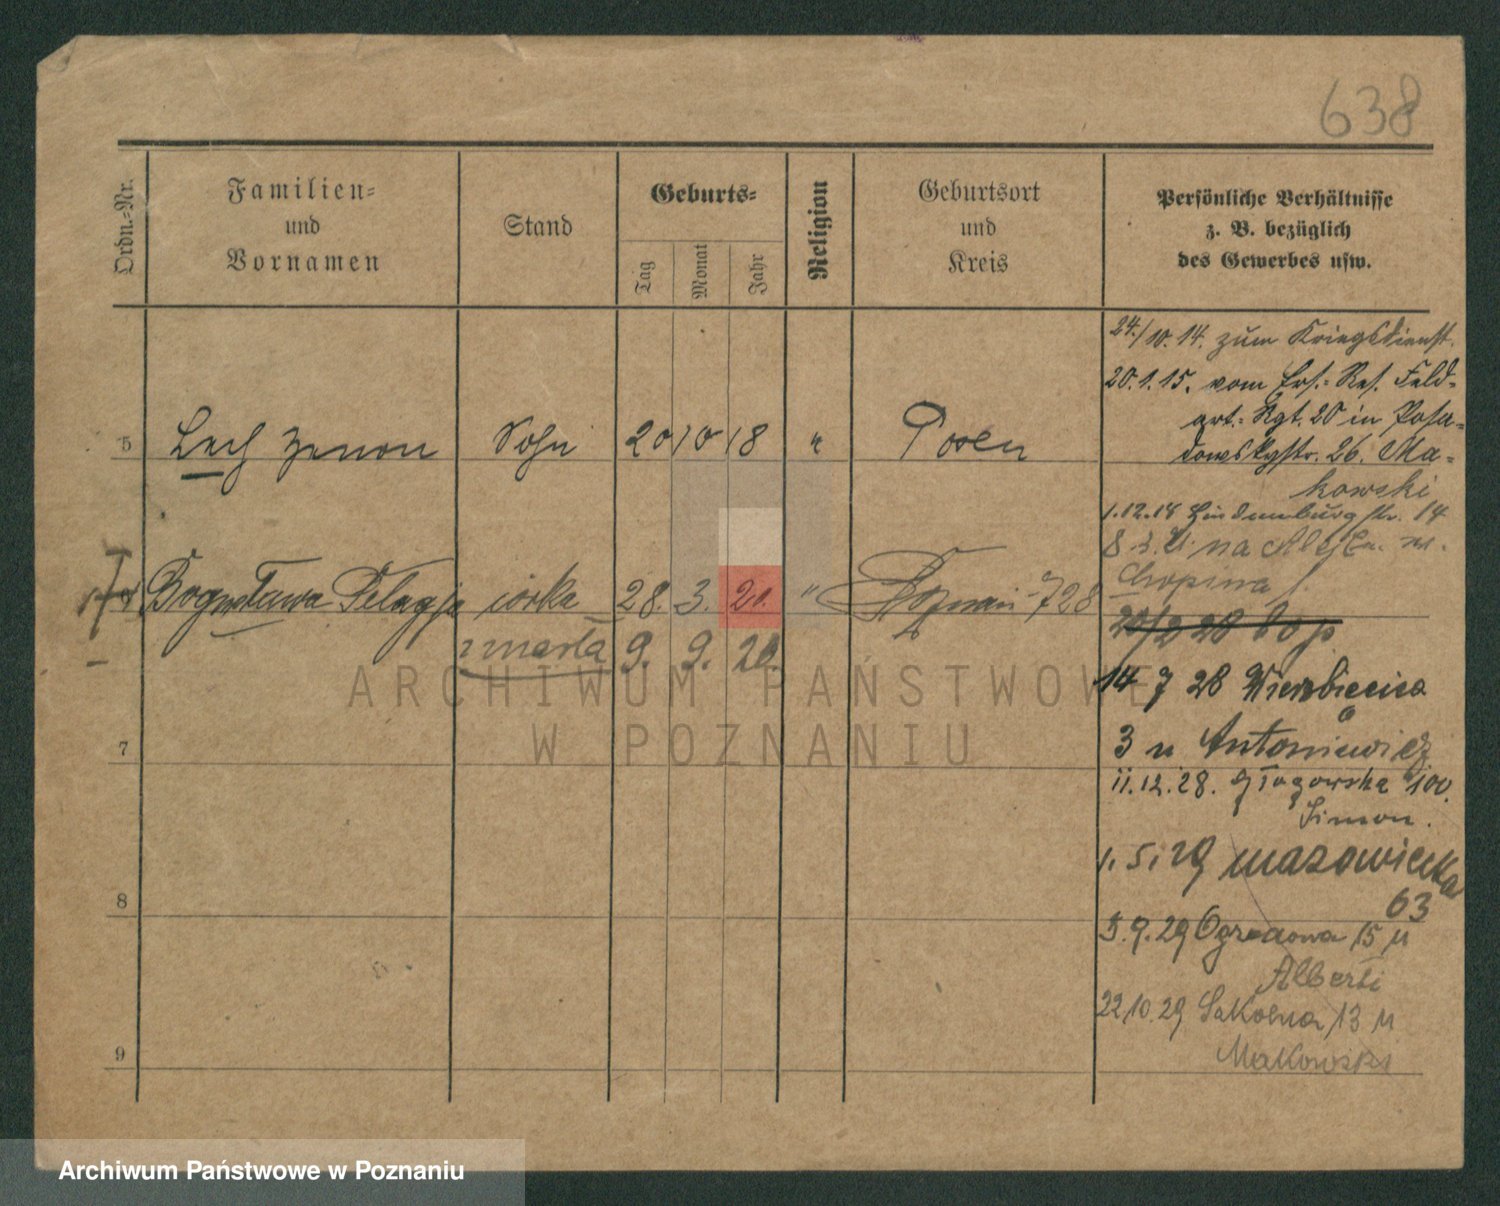 638
Ordn.-Nr.
Familien-
und
Vornamen
Stand
Geburts-
Tag
Monat
Jahr
Religion
Geburtsort
und
Kreis
Persönliche Verhältnisse
z. B. bezüglich
des Gewerbes usw.
5 Lech Zenon Sohn 20 10 18 " Posen
Bogusława Pelagja córka 28. 3. 20. " Poznań 728
zmarła 9. 9. 20.
7
8
9
24./10. 14. zum Kriegsdienst.
20.1.15. vom Ers.-Res. Feld-
art.-Rgt. 20 in Posa-
dowskystr. 26. Ma-
kowski
1.12.18 Hindenburgstr. 14
8 3. na
Chopina
14 7 28 Wierzbięcice
3 u Antoniewicz
11.12.28. Głogowska 100.
Simon.
1. 5. 29 mazowiecka
63
5.9.29 Ogrodowa 15 u
Alberti
22.10.29 Sokolna 13 u
Makowski
ARCHIWUM PAŃSTWOWE
W POZNANIU
Archiwum Państwowe w Poznaniu